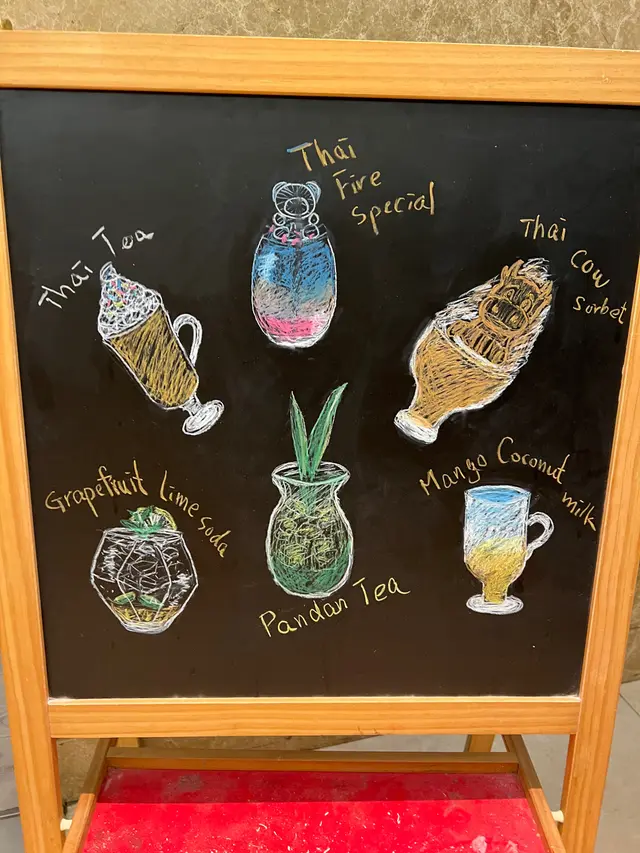 Thai Tea
Thai
Fire
Special
Thai
Cow
Sorbet
Grapefruit lime soda
Pandan Tea
Mango Coconut
milk